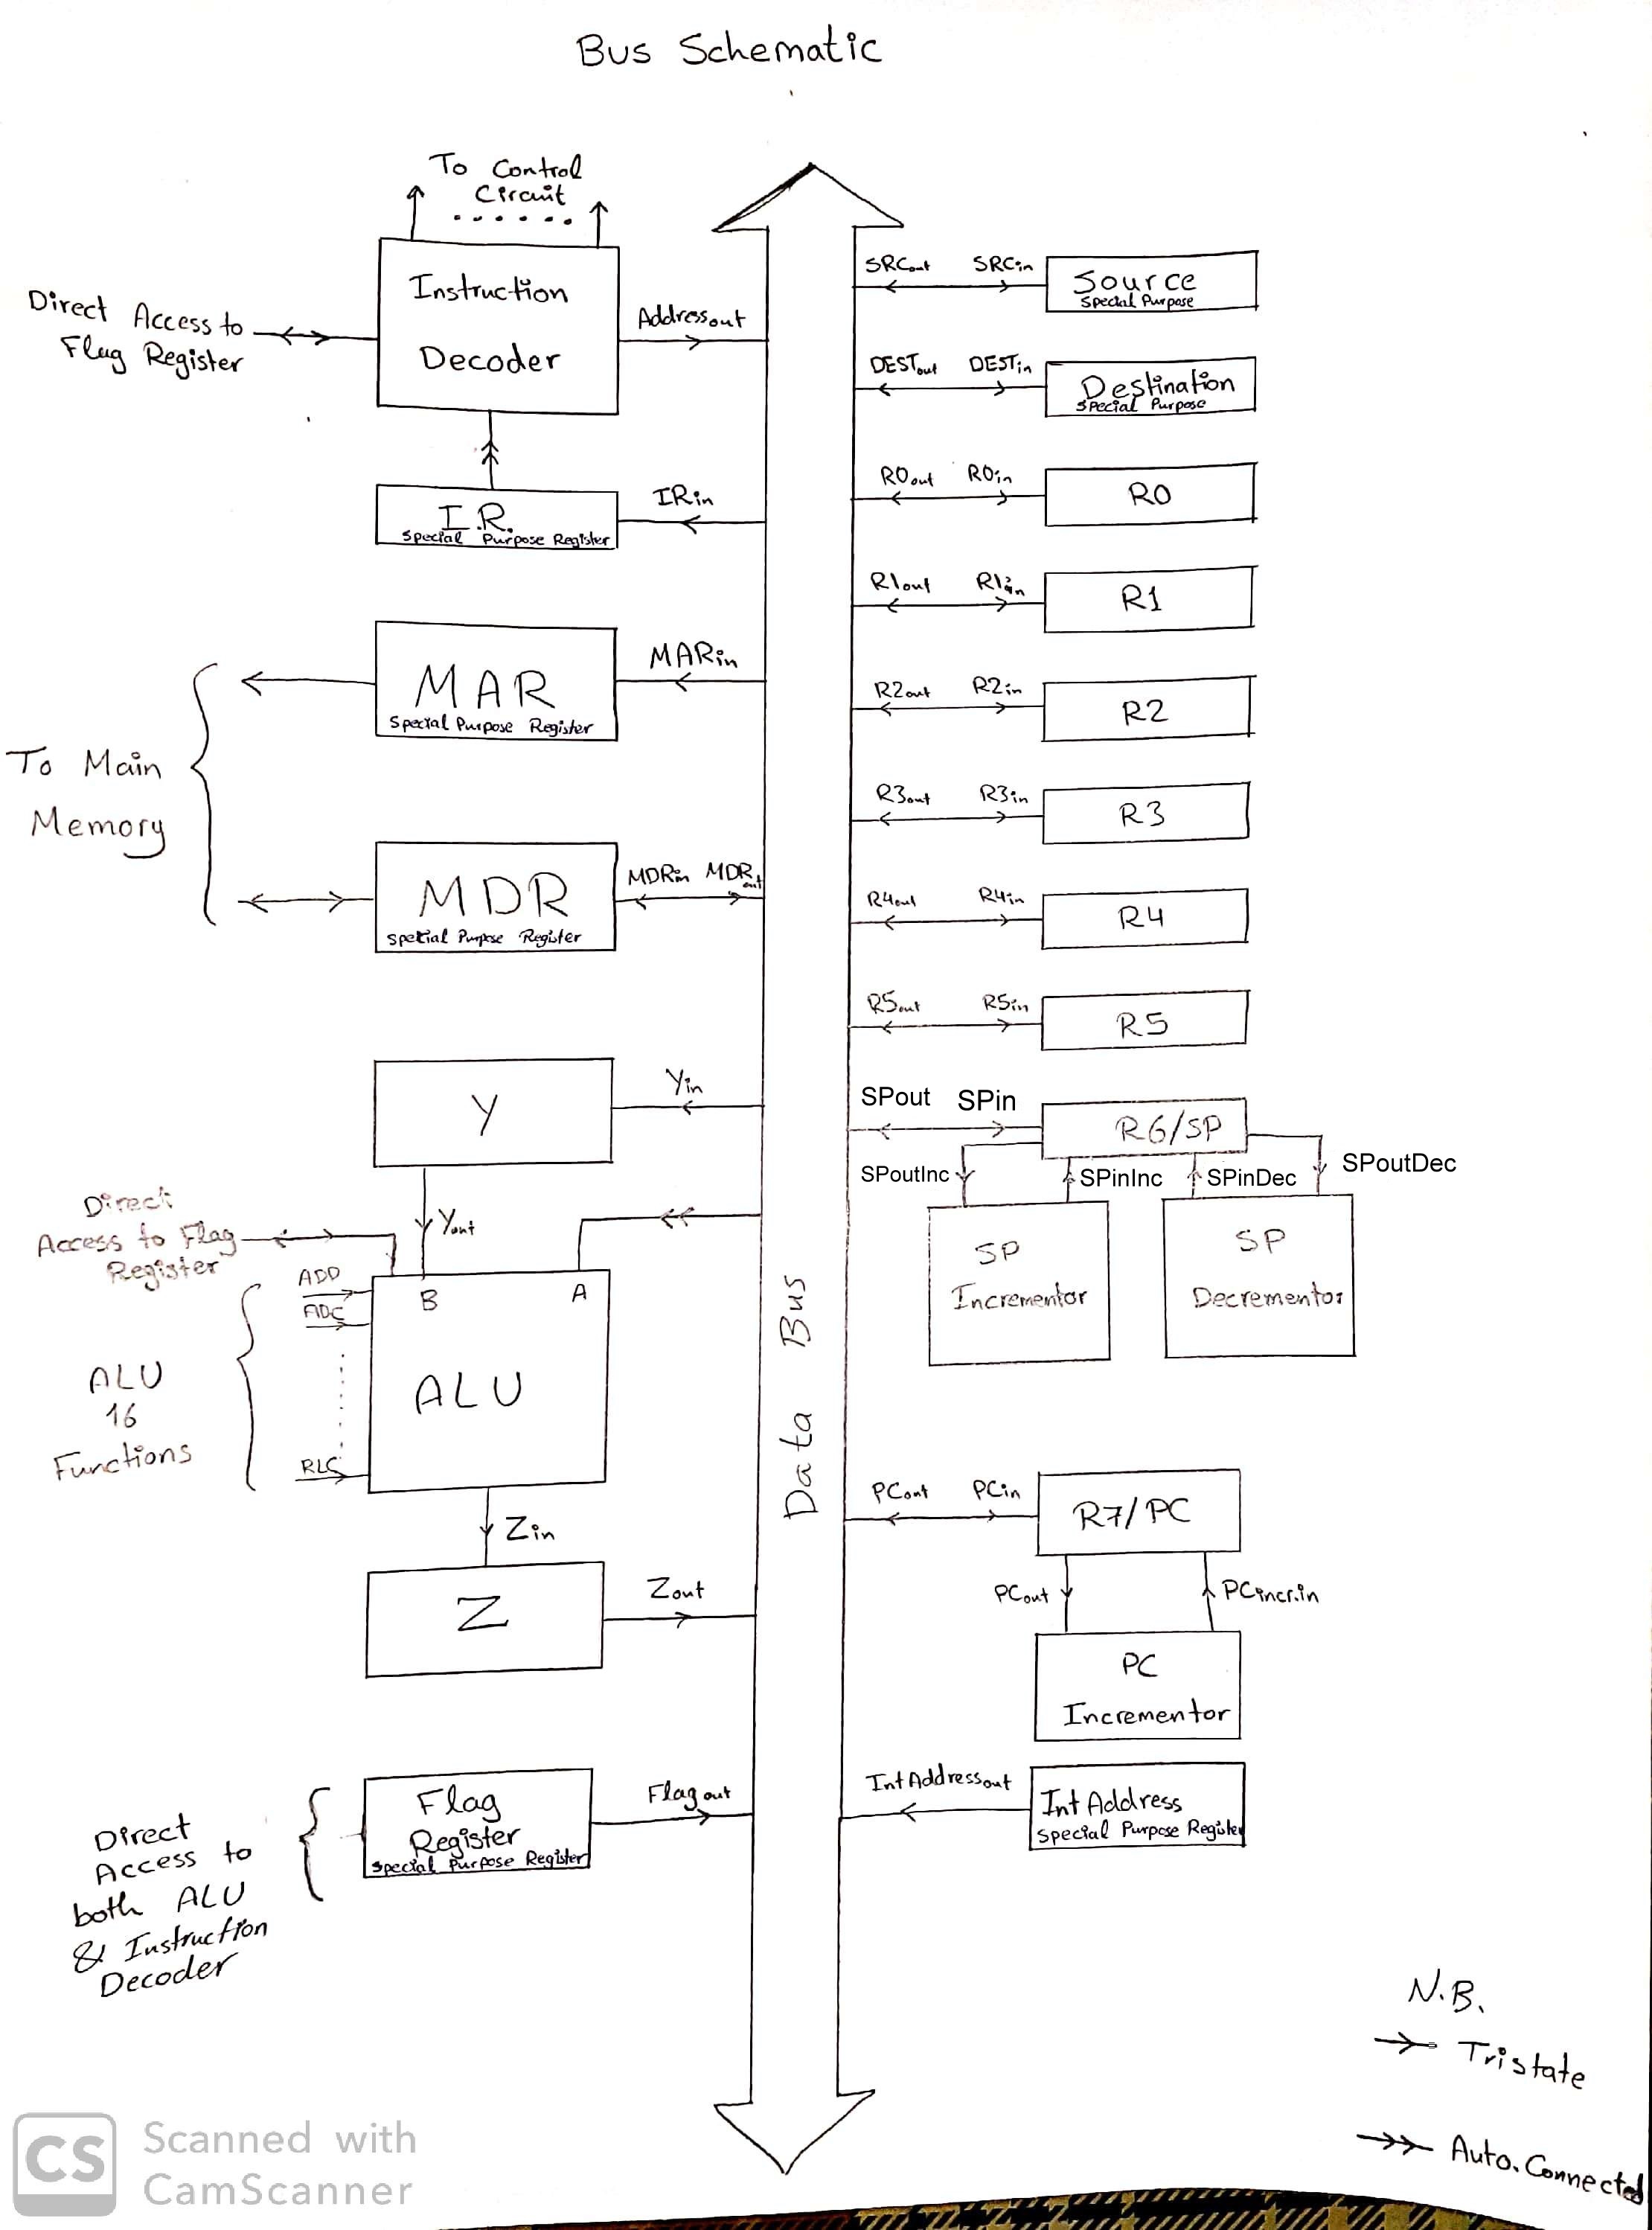 Bus Schematic
To Control
Circuit
Instruction
Decoder
Direct Access to
Flag Register
Addressout
I.R.
Special Purpose Register
IRin
MAR
Special Purpose Register
MARin
To Main
Memory
MDR
Special Purpose Register
MDRin MDRout
Y
Yin
Yout
Direct
Access to Flag
Register
ADD
ADC
RLC
B
A
ALU
ALU
16
Functions
Zin
Z
Zout
Flag
Register
Special Purpose Register
Flag out
Direct
Access to
both ALU
& Instruction
Decoder
Data Bus
SRCout SRCin
Source
Special Purpose
DESTout DESTin
Destination
Special Purpose
R0out R0in
R0
R1out R1in
R1
R2out R2in
R2
R3out R3in
R3
R4out R4in
R4
R5out R5in
R5
SPout SPin
R6/SP
SPoutInc
SPinInc
SPinDec
SPoutDec
SP
Incrementor
SP
Decrementor
PCout PCin
R7/PC
PCout
PCincr.in
PC
Incrementor
IntAddressout
Int Address
Special Purpose Register
N.B.
Tristate
Auto.Connected
CS
Scanned with
CamScanner